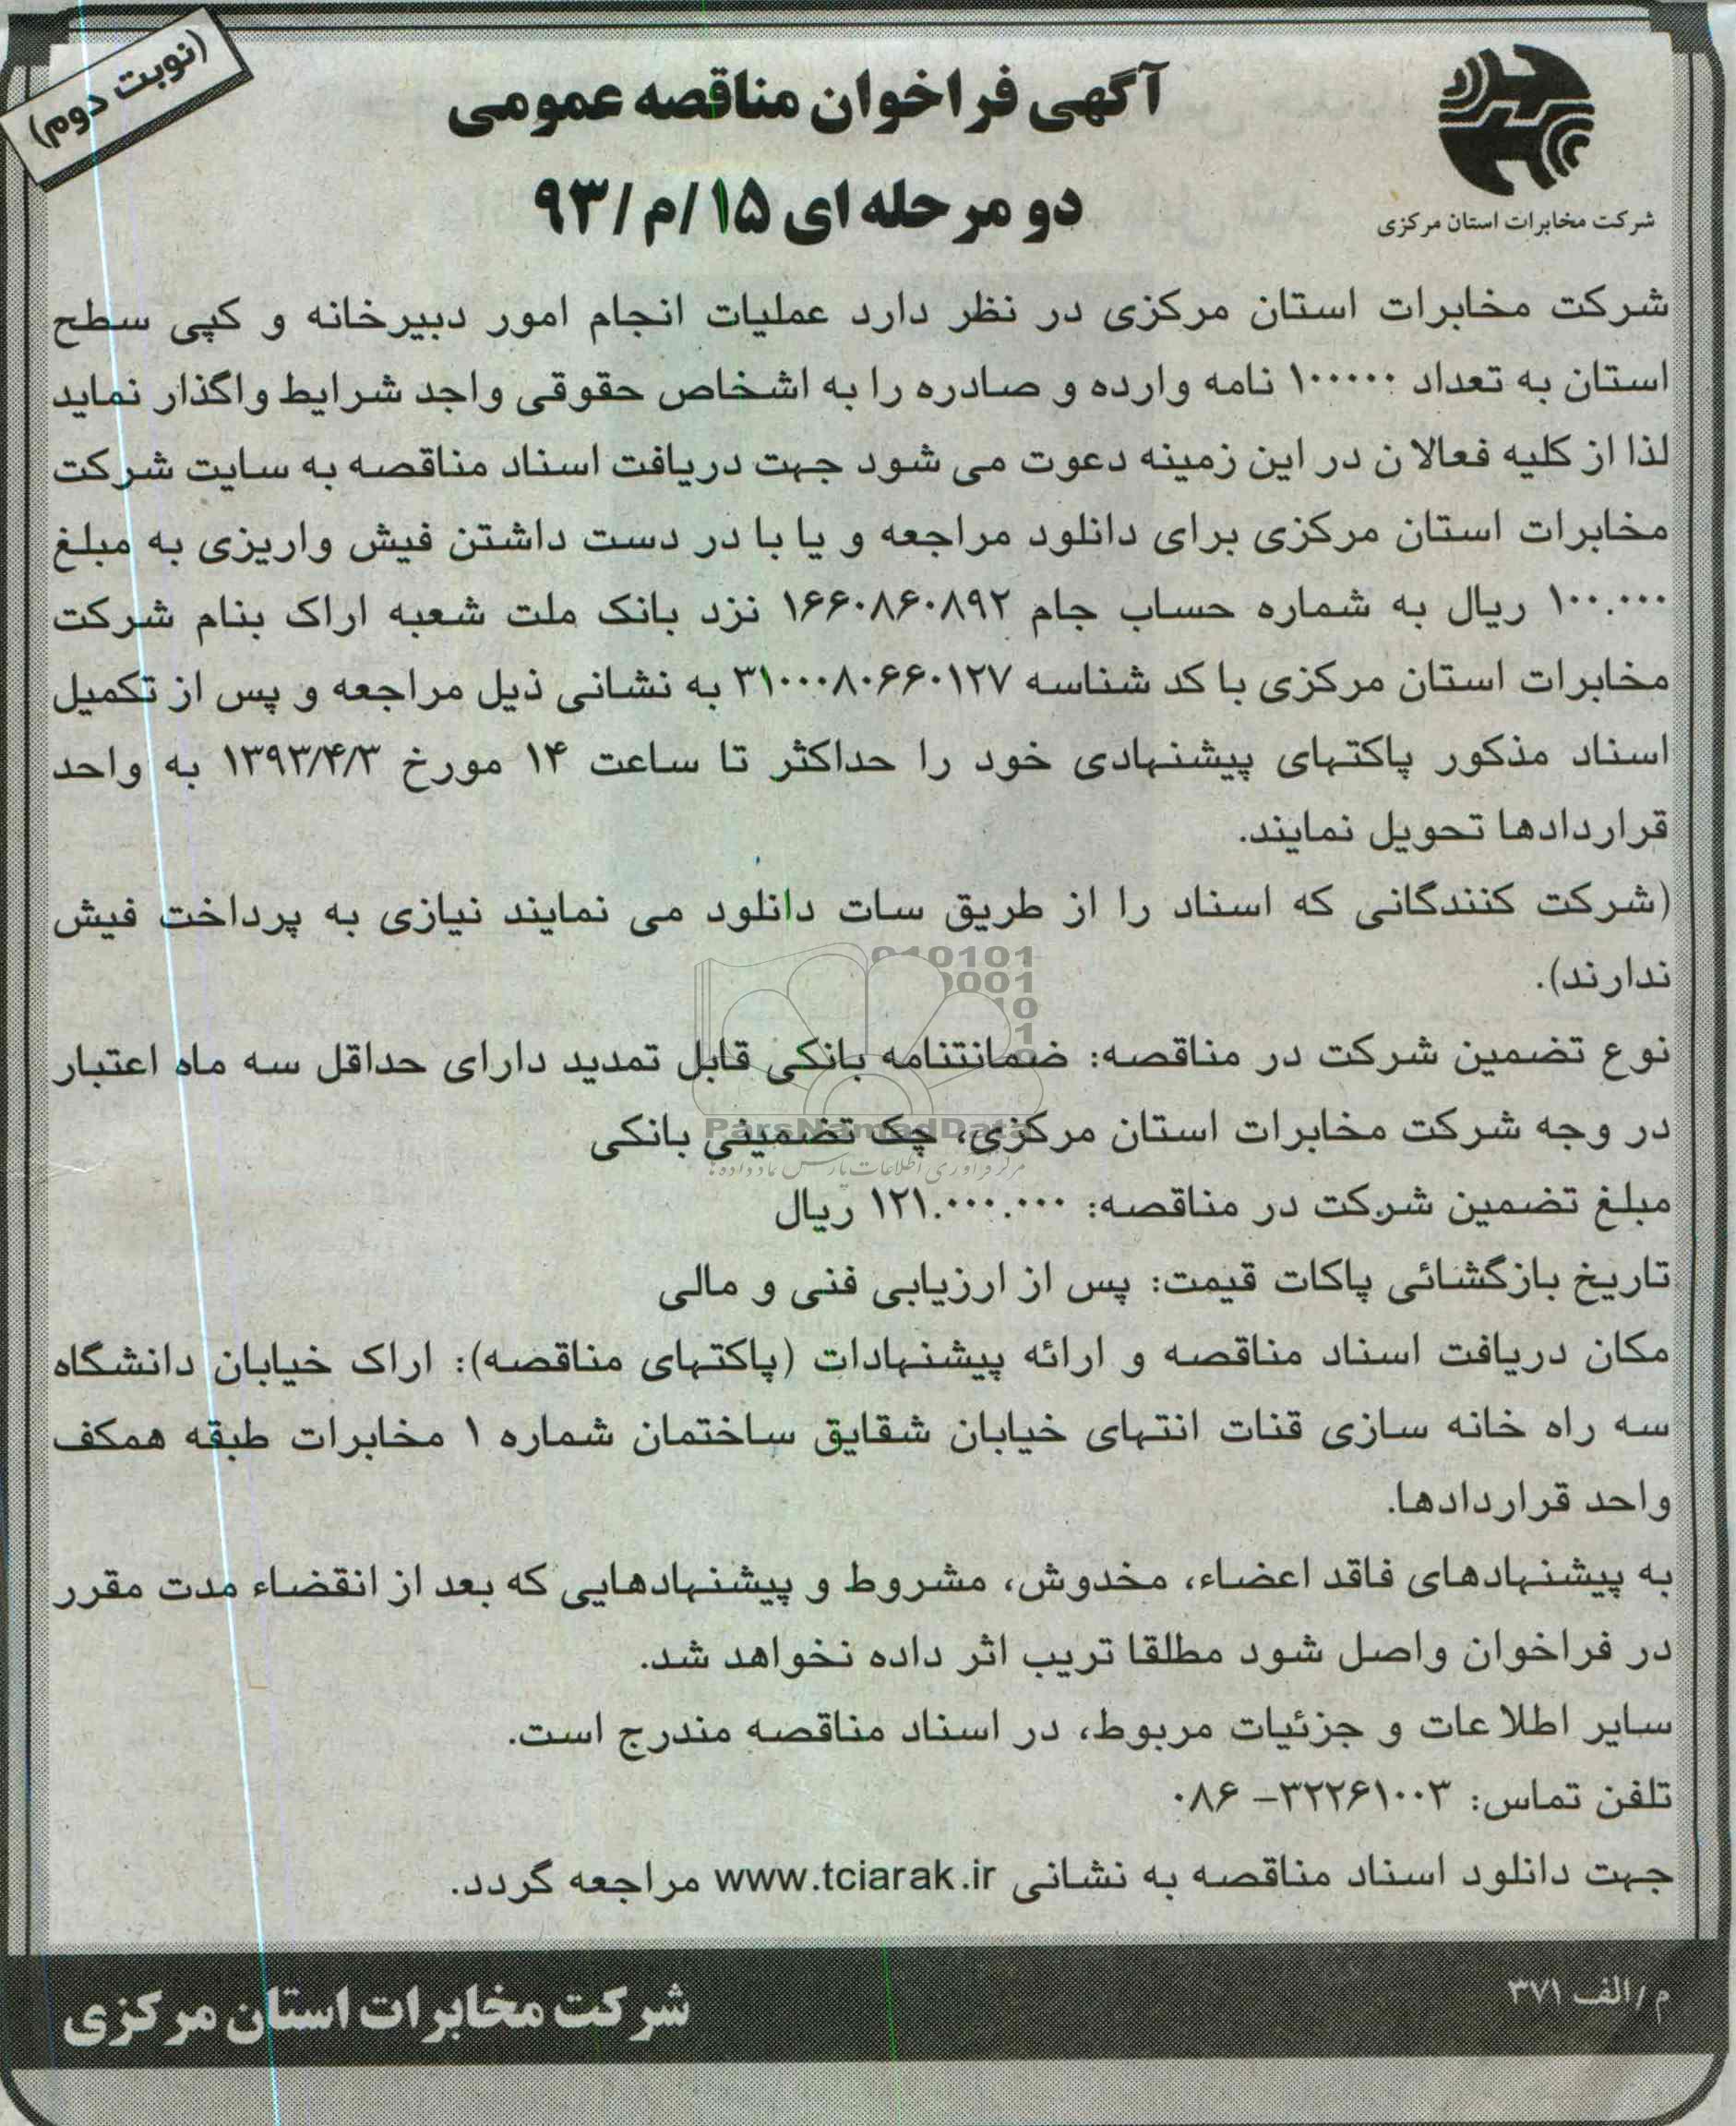 (نوبت دوم)
آگهی فراخوان مناقصه عمومی
دو مرحله ای ۱۵/م/۹۳
شرکت مخابرات استان مرکزی
شرکت مخابرات استان مرکزی در نظر دارد عملیات انجام امور دبیرخانه و کپی سطح
استان به تعداد ۱۰۰۰۰۰ نامه وارده و صادره را به اشخاص حقوقی واجد شرایط واگذار نماید
لذا از کلیه فعالان در این زمینه دعوت می شود جهت دریافت اسناد مناقصه به سایت شرکت
مخابرات استان مرکزی برای دانلود مراجعه و یا با در دست داشتن فیش واریزی به مبلغ
۱۰۰.۰۰۰ ریال به شماره حساب جام ۱۶۶۰۸۶۰۸۹۲ نزد بانک ملت شعبه اراک بنام شرکت
مخابرات استان مرکزی با کد شناسه ۳۱۰۰۰۸۰۶۶۰۱۲۷ به نشانی ذیل مراجعه و پس از تکمیل
اسناد مذکور پاکتهای پیشنهادی خود را حداکثر تا ساعت ۱۴ مورخ ۱۳۹۳/۴/۳ به واحد
قراردادها تحویل نمایند.
(شرکت کنندگانی که اسناد را از طریق سات دانلود می نمایند نیازی به پرداخت فیش
ندارند).
نوع تضمین شرکت در مناقصه: ضمانتنامه بانکی قابل تمدید دارای حداقل سه ماه اعتبار
در وجه شرکت مخابرات استان مرکزی، چک تضمینی بانکی
مبلغ تضمین شرکت در مناقصه: ۱۲۱.۰۰۰.۰۰۰ ریال
تاریخ بازگشائی پاکات قیمت: پس از ارزیابی فنی و مالی
مکان دریافت اسناد مناقصه و ارائه پیشنهادات (پاکتهای مناقصه): اراک خیابان دانشگاه
سه راه خانه سازی قنات انتهای خیابان شقایق ساختمان شماره ۱ مخابرات طبقه همکف
واحد قراردادها.
به پیشنهادهای فاقد اعضاء، مخدوش، مشروط و پیشنهادهایی که بعد از انقضاء مدت مقرر
در فراخوان واصل شود مطلقا تریب اثر داده نخواهد شد.
سایر اطلاعات و جزئیات مربوط، در اسناد مناقصه مندرج است.
تلفن تماس: ۳۲۲۶۱۰۰۳– ۰۸۶
جهت دانلود اسناد مناقصه به نشانی www.tciarak.ir مراجعه گردد.
م/الف ۳۷۱
شرکت مخابرات استان مرکزی
ParsNamadData